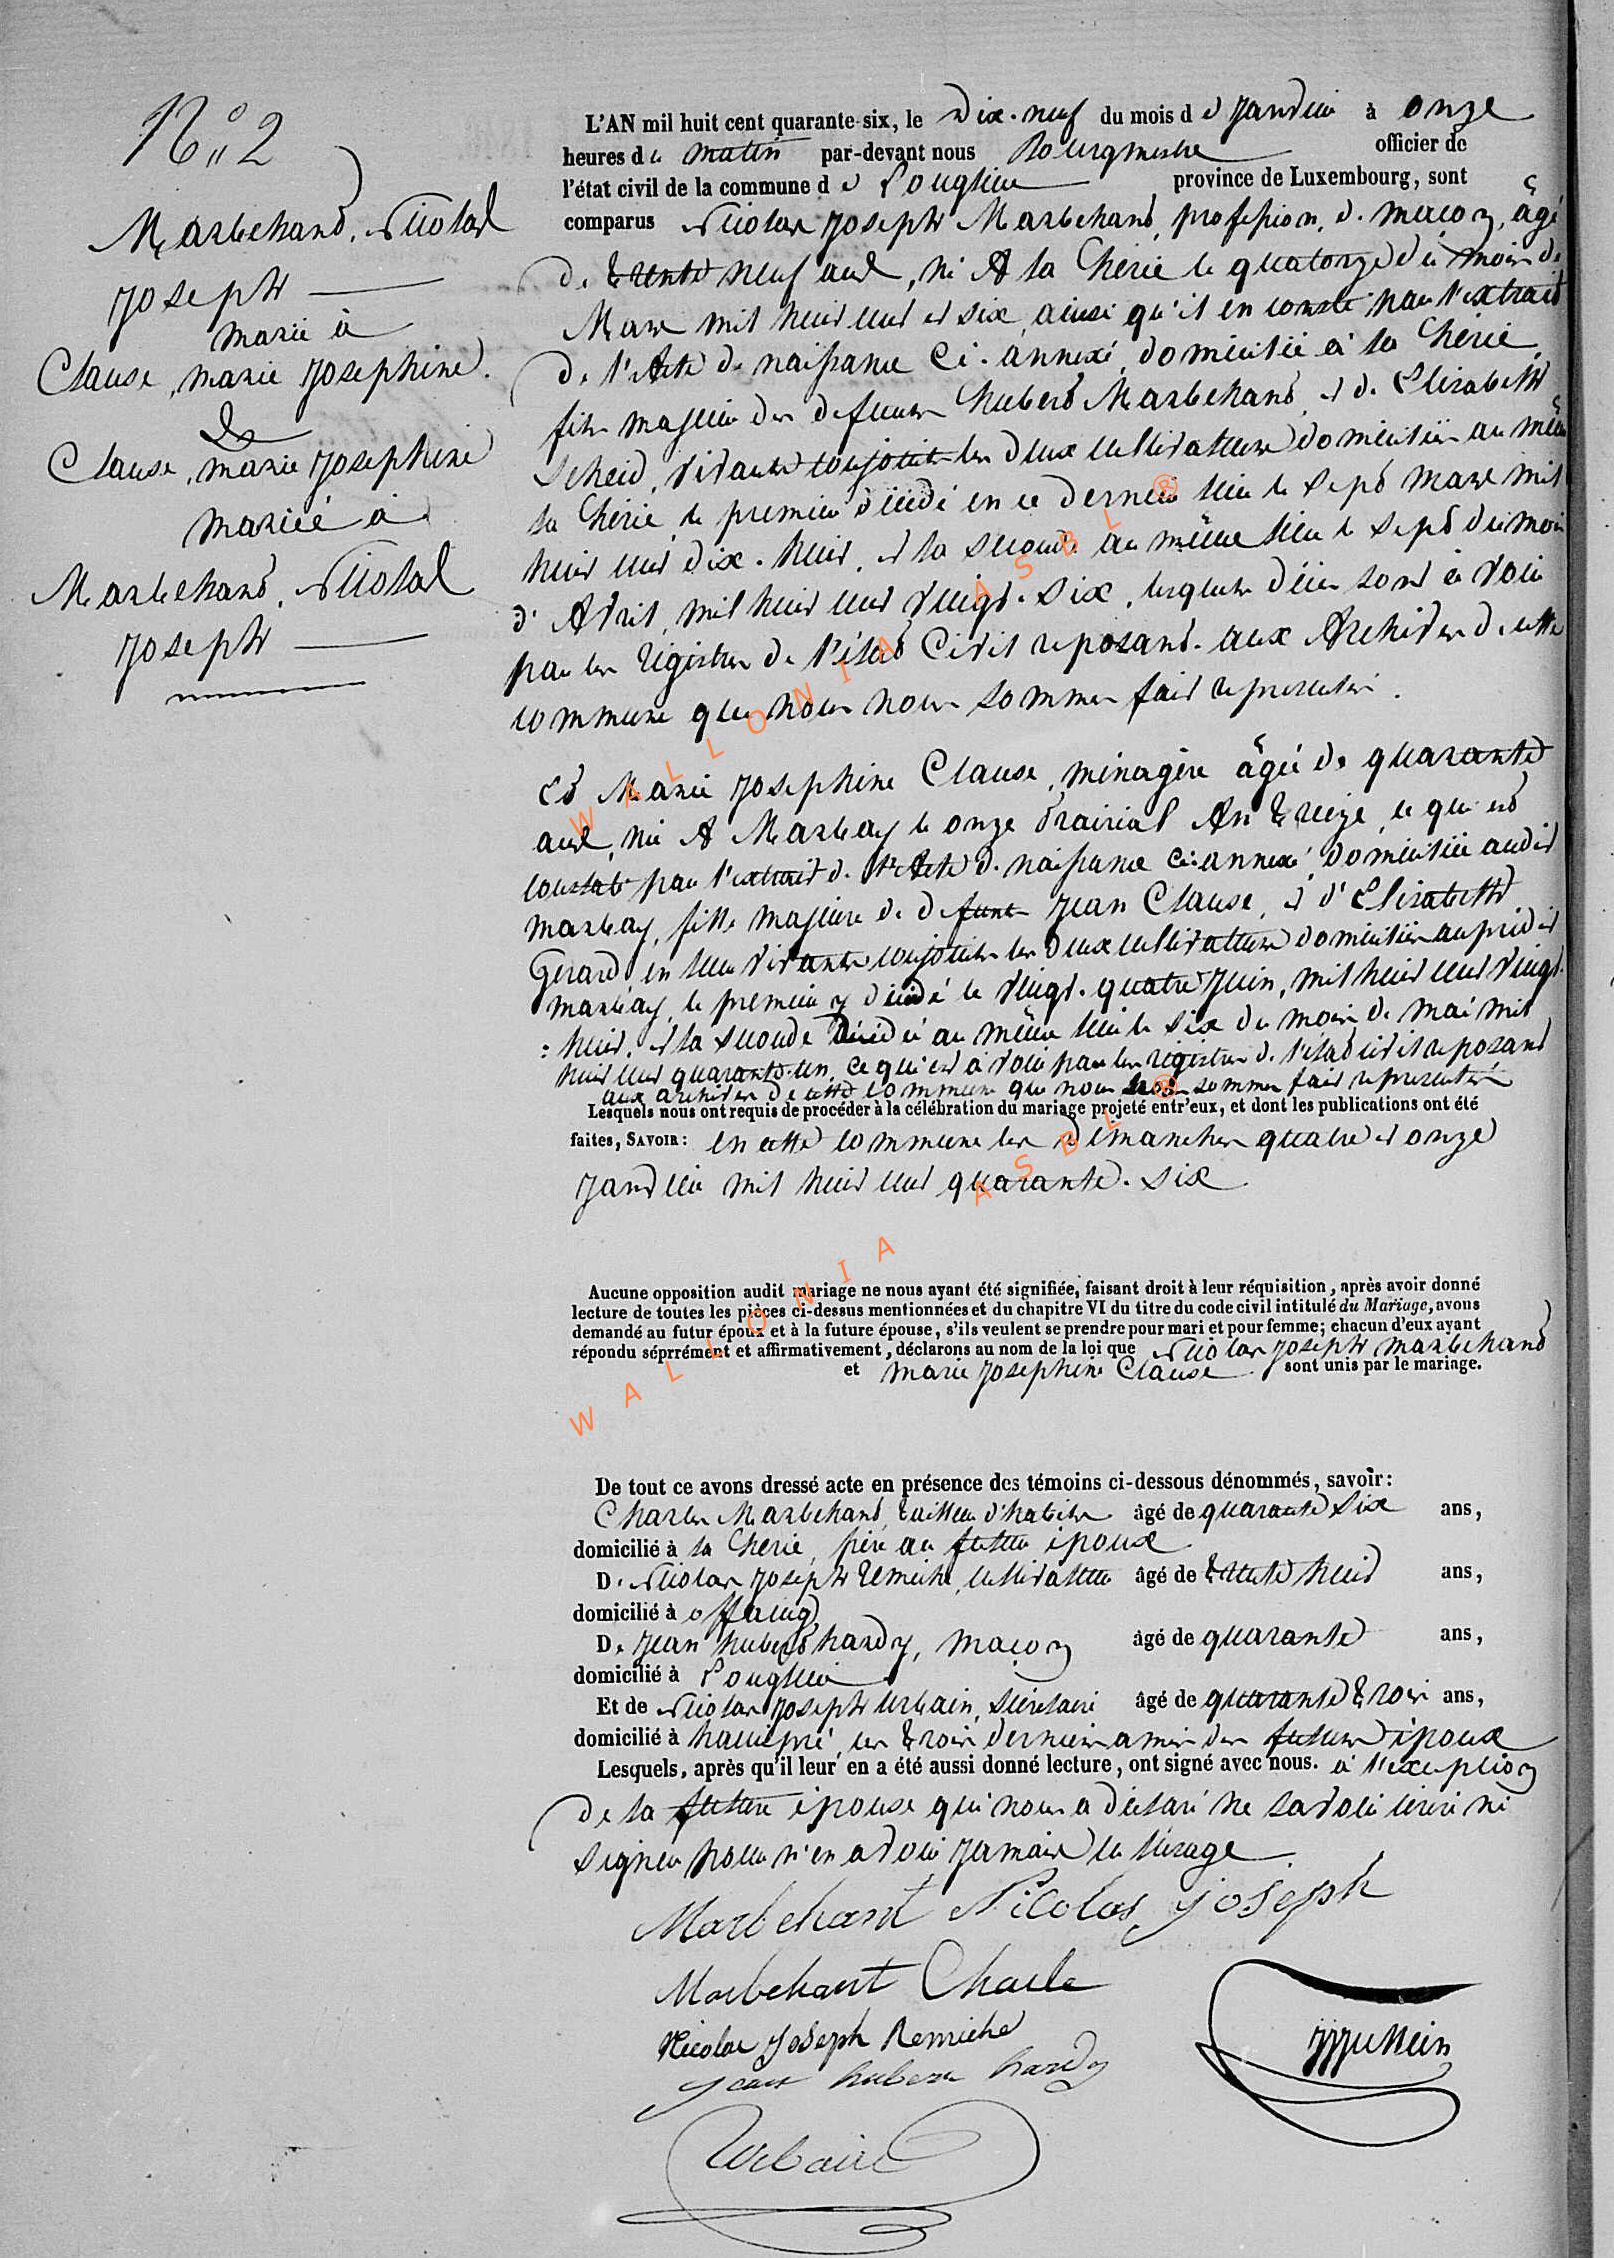 N° 2
Marbehand, Nicolas
Joseph
marié à
Clause, marie Josephine.
&
Clause, marie Josephine
mariée à
Marbehand, Nicolas
Joseph
L'AN mil huit cent quarante-six, le Dix-neuf du mois de Janvier à onze
heures du matin par-devant nous Bourgmestre officier de
l'état civil de la commune de Louftémont province de Luxembourg, sont
comparus Nicolas Joseph Marbehand, profession de maçon, âgé
de trente neuf ans, né A la Chérie le quatorze du mois de
Mars mil huit cent et six, ainsi qu'il en conste par l'extrait
de l'Acte de naissance ci-annexé, domicilié à la Chérie,
fils majeur des defunts Hubert Marbehand, et de Elizabeth
Scheid, vivants conjoints les deux cultivateurs domiciliés au même
la Chérie, le premier décédé en ce dernier lieu le sept mars mil
huit cent dix-huit, et la seconde au même lieu le sept du mois
d'Avril, mil huit cent vingt-six, lesquels décès sont à voir
par les régistres de l'état Civil reposant aux Archives de cette
commune que nous nous sommes fait représenter.
Et Marie Josephine Clause, ménagère âgée de quarante
ans, née A Marbay le onze Prairial An treize, ce qui est
constaté par l'extrait de l'Acte de naissance ci-annexé, domiciliée audit
marbay, fille majeure de defunt Jean Clause, et d'Elizabeth
Gerard, en leur vivants conjoints les deux cultivateurs domiciliés au prédit
marbay, le premier y décédé le vingt-quatre Juin, mil huit cent vingt-
: huit, et la seconde décédée au même lieu le six du mois de mai mil
huit cent quarante-un, ce qui est à voir par les régistres de l'état civil reposant
aux archives de cette commune que nous nous sommes fait représenter
Lesquels nous ont requis de procéder à la célébration du mariage projeté entr'eux, et dont les publications ont été
faites, SAVOIR : en cette commune les dimanches quatre et onze
Janvier mil huit cent quarante-six
Aucune opposition audit mariage ne nous ayant été signifiée, faisant droit à leur réquisition, après avoir donné
lecture de toutes les pièces ci-dessus mentionnées et du chapitre VI du titre du code civil intitulé du Mariage, avons
demandé au futur époux et à la future épouse, s'ils veulent se prendre pour mari et pour femme; chacun d'eux ayant
répondu séprrément et affirmativement, déclarons au nom de la loi que Nicolas Joseph Marbehand
et Marie Josephine Clause sont unis par le mariage.
De tout ce avons dressé acte en présence des témoins ci-dessous dénommés, savoir:
Charles Marbehand, tailleur d'habits âgé de quarante six ans,
domicilié à la Chérie, frère au futur époux
De Nicolas Joseph Remiche, cultivateur âgé de trente huit ans,
domicilié à offaing
De Jean hubert hardy, maçon âgé de quarante ans,
domicilié à
Et de Nicolas Joseph Urbain, secrétaire âgé de quarante trois ans,
domicilié à hamipré, les trois derniers amis des futurs époux
Lesquels, après qu'il leur en a été aussi donné lecture, ont signé avec nous. à l'exception
de la future épouse qui nous a déclaré ne savoir écrire ni
signer pour n'en avoir jamais eu l'usage.
Marbehant Nicolas Joseph
Marbehant Charle
Nicolas Joseph Remiche
Jean hubert hardy
Urbain
WALLONIA ASBL ®
WALLONIA ASBL ®